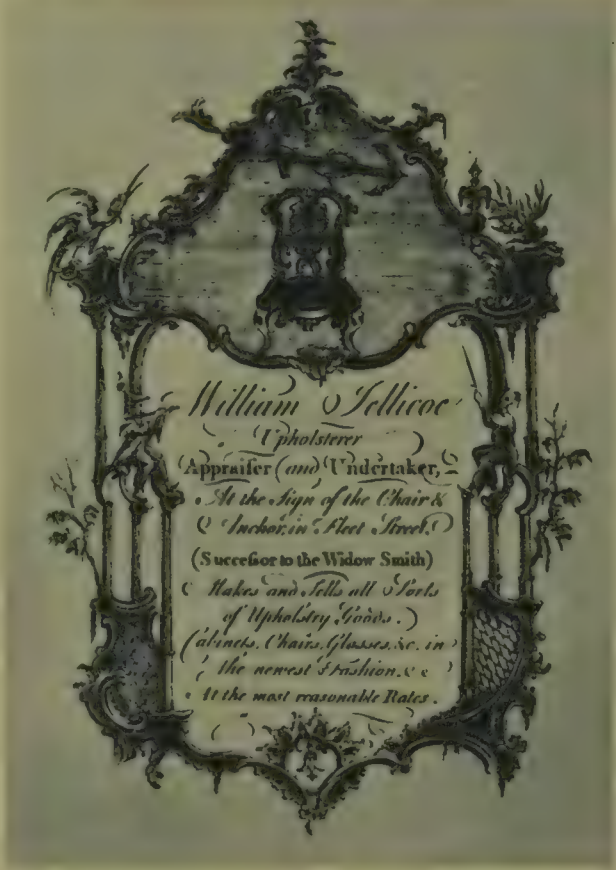 William Jellicoe
Upholsterer
Appraiſer (and Undertaker,
At the Sign of the Chair &
Anchor, in Fleet Street.
(Succeſsor to the Widow Smith)
Makes and Sells all Sorts
of Upholstry Goods.
Cabinets, Chairs, Glasses, &c. in
the newest Fashion, &
At the most reasonable Rates.